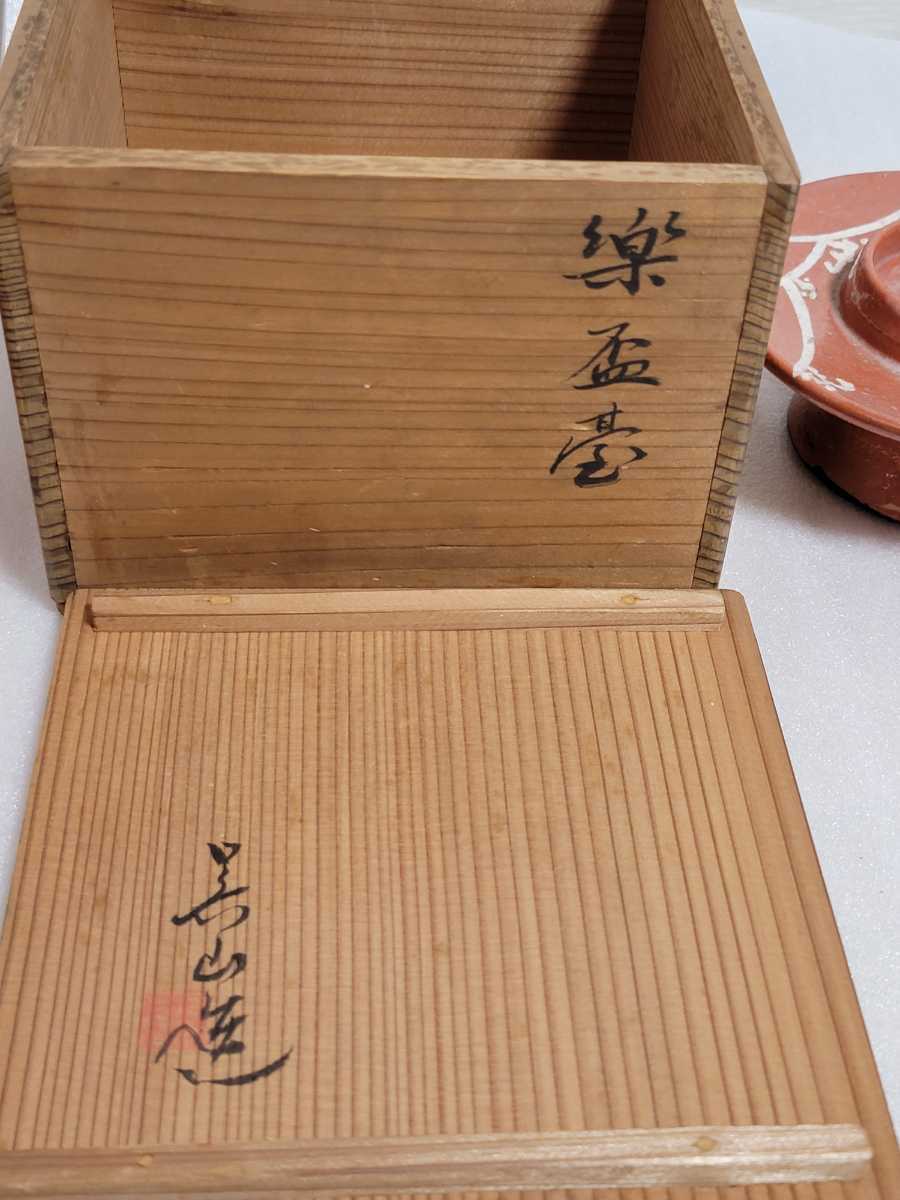 樂盃臺
呉山造